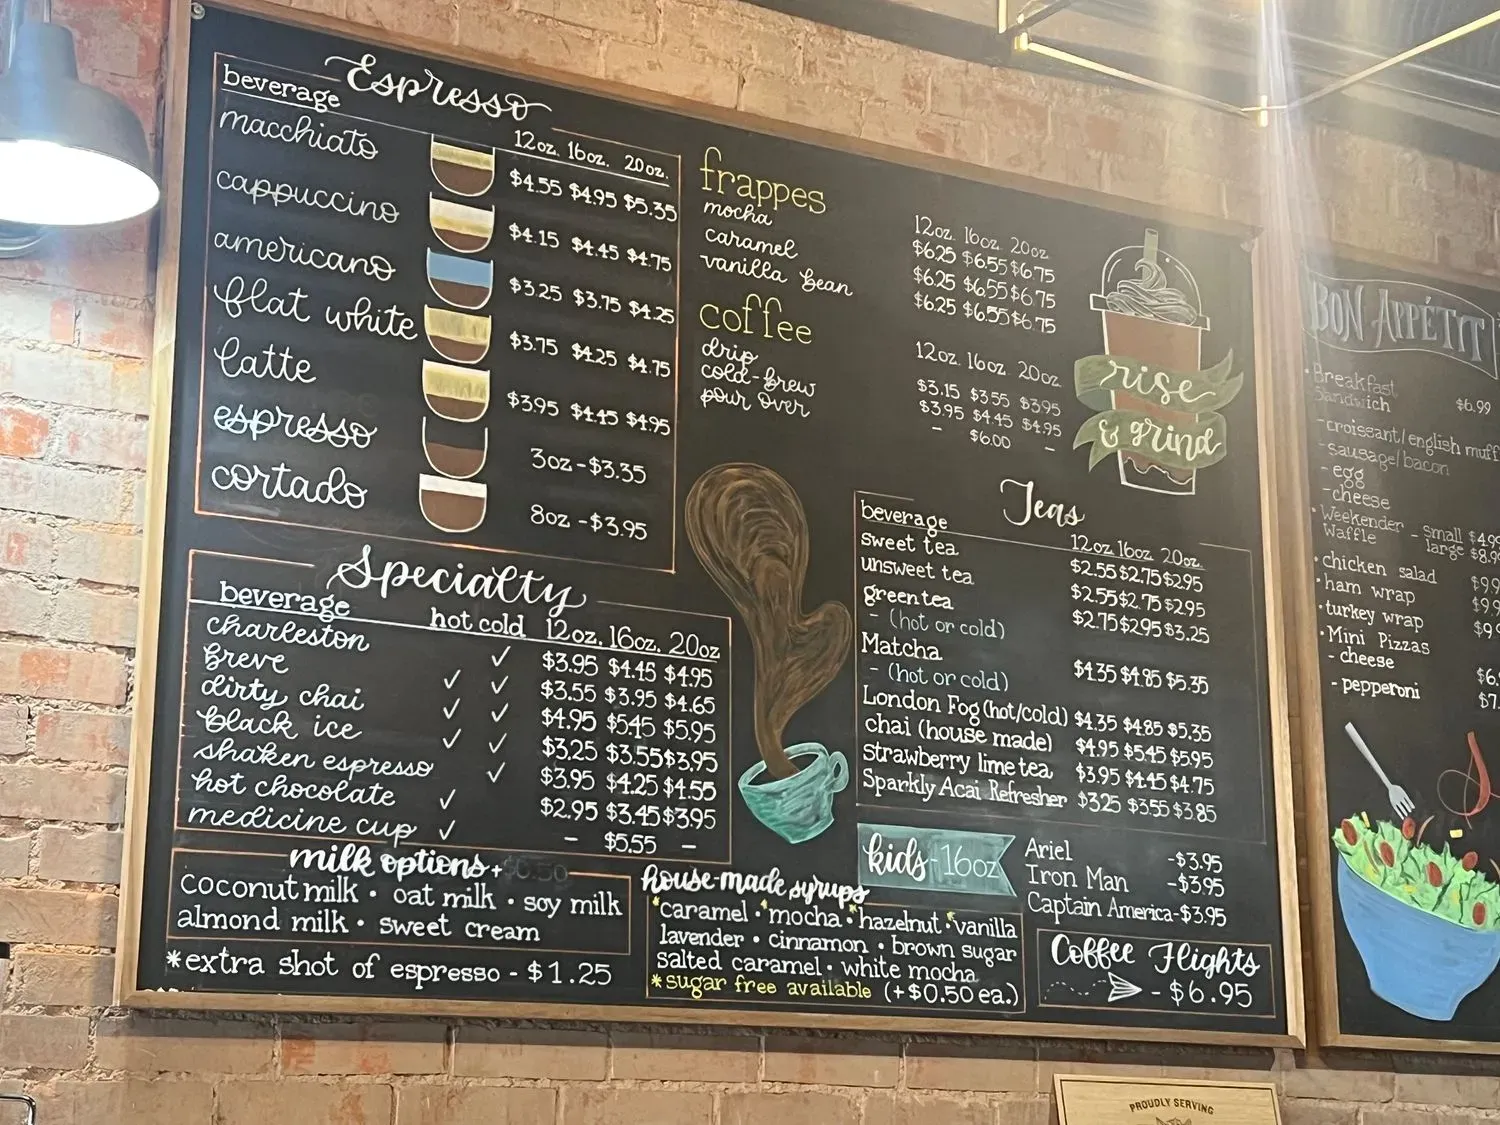 Espresso
beverage
12oz. 16oz. 20oz.
macchiato $4.55 $4.95 $5.35
cappuccino $4.15 $4.45 $4.75
americano $3.25 $3.75 $4.25
flat white $3.75 $4.25 $4.75
latte $3.95 $4.45 $4.95
espresso 3oz-$3.35
cortado 8oz-$3.95
Specialty
beverage hot cold 12oz. 16oz. 20oz
charleston ✓ $3.95 $4.45 $4.95
breve ✓ ✓ $3.55 $3.95 $4.65
dirty chai ✓ ✓ $4.95 $5.45 $5.95
black ice ✓ ✓ $3.25 $3.55 $3.95
shaken espresso ✓ $3.95 $4.25 $4.55
hot chocolate ✓ $2.95 $3.45 $3.95
medicine cup ✓ - $5.55 -
milk options + $0.50
coconut milk • oat milk • soy milk
almond milk • sweet cream
*extra shot of espresso - $1.25
frappes
12oz. 16oz. 20oz
mocha $6.25 $6.55 $6.75
caramel $6.25 $6.55 $6.75
vanilla bean $6.25 $6.55 $6.75
coffee
12oz. 16oz. 20oz.
drip $3.15 $3.55 $3.95
cold-brew $3.95 $4.45 $4.95
pour over - $6.00 -
rise
& grind
Teas
beverage 12oz. 16oz. 20oz.
sweet tea $2.55 $2.75 $2.95
unsweet tea $2.55 $2.75 $2.95
green tea $2.75 $2.95 $3.25
- (hot or cold)
Matcha $4.35 $4.85 $5.35
- (hot or cold)
London Fog (hot/cold) $4.35 $4.85 $5.35
chai (house made) $4.95 $5.45 $5.95
Strawberry lime tea $3.95 $4.45 $4.75
Sparkly Acai Refresher $3.25 $3.55 $3.85
kids-16oz
Ariel -$3.95
Iron Man -$3.95
Captain America-$3.95
house-made syrups
*caramel • *mocha • *hazelnut • *vanilla
lavender • cinnamon • brown sugar
salted caramel • white mocha
*sugar free available (+$0.50 ea.)
Coffee Flights
- $6.95
BON APPÉTIT
• Breakfast
Sandwich $6.99
-croissant/english muff
-sausage/bacon
- egg
-cheese
• Weekender - small $4.99
Waffle large $8.9
• chicken salad $9.9
• ham wrap $9.9
• turkey wrap $9
• Mini Pizzas
- cheese $6.
- pepperoni $7.
PROUDLY SERVING